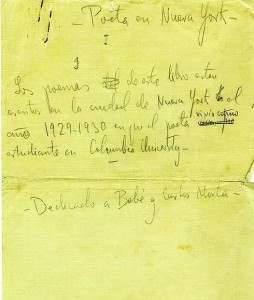 - Poeta en Nueva York -
I
Los poemas de este libro estan
escritos en la ciudad de Nueva York el
año 1929-1930 en q. el poeta vivió como
estudiante en Columbia University -
- Dedicado a Bebé y Carlos Morla -